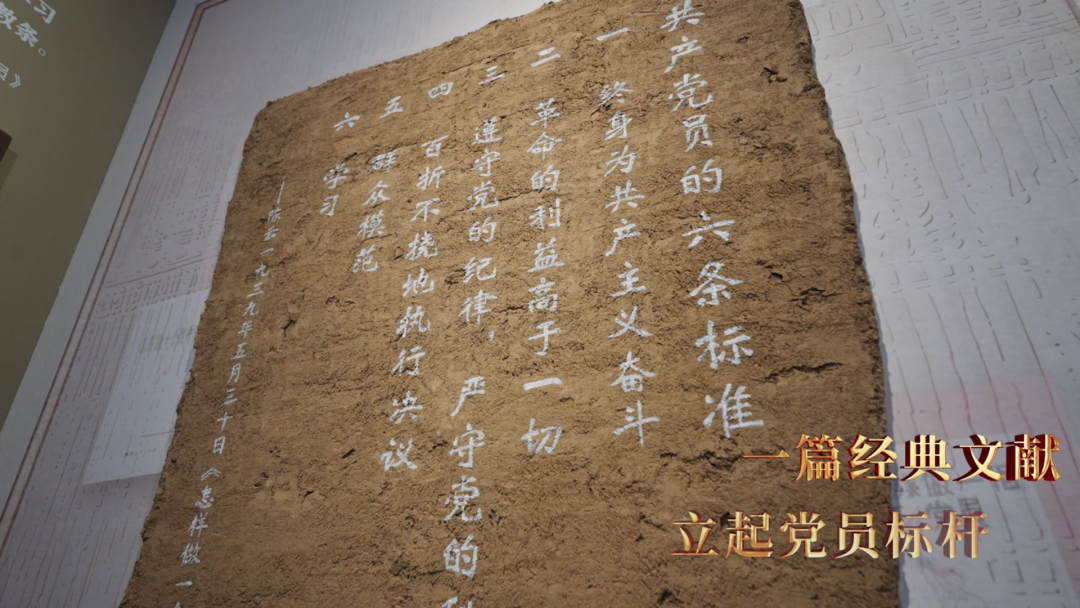 共产党员的六条标准
一 终身为共产主义奋斗
二 革命的利益高于一切
三 遵守党的纪律，严守党的
四 百折不挠地执行决议
五 群众模范
六 学习
——陈云一九三九年五月三十日《怎样做一
习
教条。
员》
一篇经典文献
立起党员标杆